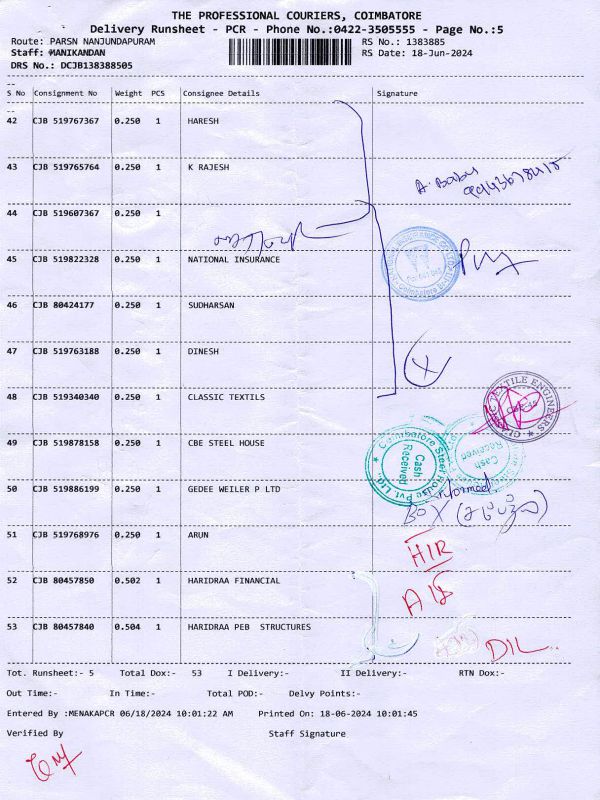 THE PROFESSIONAL COURIERS, COIMBATORE
Delivery Runsheet - PCR - Phone No.:0422-3505555 - Page No.:5
Route: PARSN NANJUNDAPURAM RS No.: 1383885
Staff: MANIKANDAN RS Date: 18-Jun-2024
DRS No.: DCJB138388505
S No Consignment No Weight PCS Consignee Details Signature
42 CJB 519767367 0.250 1 HARESH
43 CJB 519765764 0.250 1 K RAJESH
A. Babu
44 CJB 519607367 0.250 1
45 CJB 519822328 0.250 1 NATIONAL INSURANCE
46 CJB 80424177 0.250 1 SUDHARSAN
47 CJB 519763188 0.250 1 DINESH
48 CJB 519340340 0.250 1 CLASSIC TEXTILS
CLASSIC TEXTILE ENGINEERS
49 CJB 519878158 0.250 1 CBE STEEL HOUSE
Coimbatore Steel House Pvt. Ltd.,
Cash Received
Cash Received
50 CJB 519886199 0.250 1 GEDEE WEILER P LTD
BOX
51 CJB 519768976 0.250 1 ARUN
HIR
52 CJB 80457850 0.502 1 HARIDRAA FINANCIAL
53 CJB 80457840 0.504 1 HARIDRAA PEB STRUCTURES
DIL
Tot. Runsheet:- 5 Total Dox:- 53 I Delivery:- II Delivery:- RTN Dox:-
Out Time:- In Time:- Total POD:- Delvy Points:-
Entered By :MENAKAPCR 06/18/2024 10:01:22 AM Printed On: 18-06-2024 10:01:45
Verified By Staff Signature